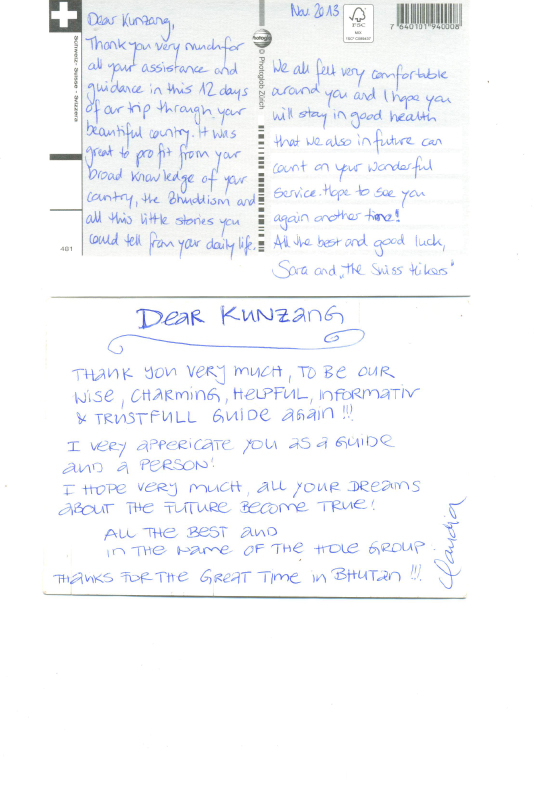 Dear Kunzang,
Thank you very much for
all your assistance and
guidance in this 12 days
of our trip through your
beautiful country. It was
great to profit from your
broad knowledge of your
country, the Bhuddism and
all this little stories you
could tell from your daily life.
Schweiz - Suisse - Svizzera
481
photoglob
© Photoglob Zürich
Nov. 2013
FSC
MIX
7 640101 940008
We all felt very comfortable
around you and I hope you
will stay in good health
that we also in future can
count on your wonderful
service. Hope to see you
again another time!
All the best and good luck,
Sara and „the Swiss Hikers"
Dear Kunzang
Thank you very much, to be our
wise, charming, helpful, informativ
& trustfull guide again !!!
I very appericate you as a guide
and a person!
I hope very much, all your dreams
about the future become true!
All the best and
in the name of the hole group.
Claudia
Thanks for the great time in Bhutan !!!